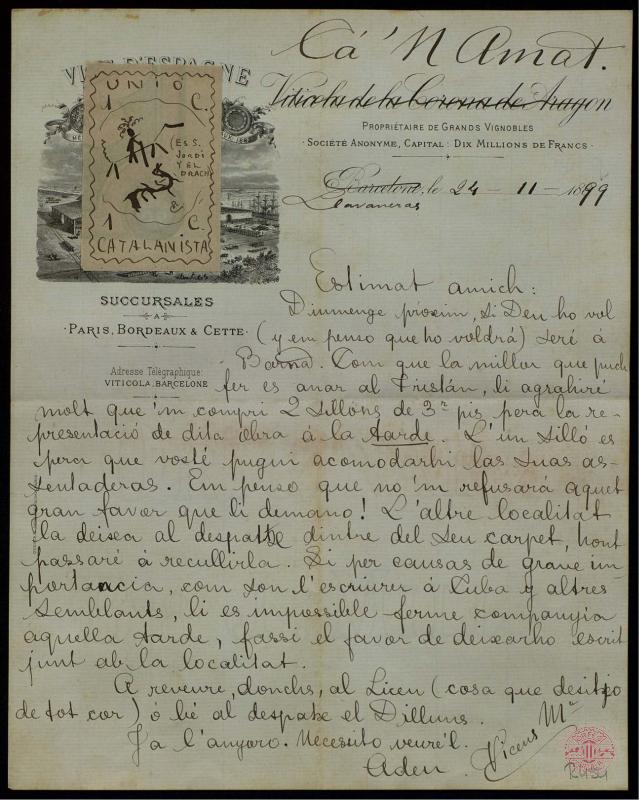 Cá 'N Amat.
VI D'ESPAGNE
Viticola de la Corona de Aragon
PROPRIÉTAIRE DE GRANDS VIGNOBLES
SOCIÉTÉ ANONYME, CAPITAL: DIX MILLIONS DE FRANCS
UNIÓ
1 C.
(Es S.
Jordi
y el
drach)
1 C.
CATALANISTA
Barcelone, le 24 - 11 - 1899
Llavaneras
SUCCURSALES
A
PARIS, BORDEAUX & CETTE
Adresse Télégraphique:
VITICOLA, BARCELONE
Estimat amich:
Diumenge próxim, si Deu ho vol
(y em penso que ho voldrá) seré á
Barna. Com que la millor que puch
fer es anar al Tristán, li agrahiré
molt que 'm compri 2 sillons de 3r pis pera la re-
presentació de dita obra á la tarde. L'un silló es
pera que vosté pugui acomodarhi las suas as-
sentaderas. Em penso que no 'm refusará aquet
gran favor que li demano! L'altre localitat
la deixa al despatx dintre del seu carpet, hont
passaré á recullirla. Si per causas de grave im-
portancia, com son l'escriurer á Cuba y altres
semblants, li es impossible ferme companyia
aquella tarde, fassi el favor de deixarho escrit
junt ab la localitat.
A reveure, donchs, al Liceu (cosa que desitjo
de tot cor) ó bé al despatx el Dilluns.
Ja l'anyoro. Necessito veure'l.
Adeu. Vicens Ma
R.454